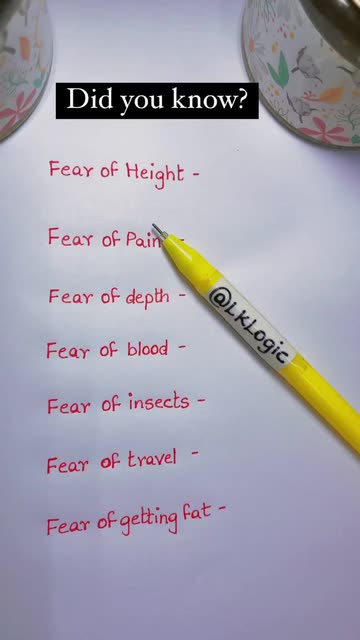 Did you know?
Fear of Height -
Fear of Pain -
Fear of depth -
@LKLogic
Fear of blood -
Fear of insects -
Fear of travel -
Fear of getting fat -